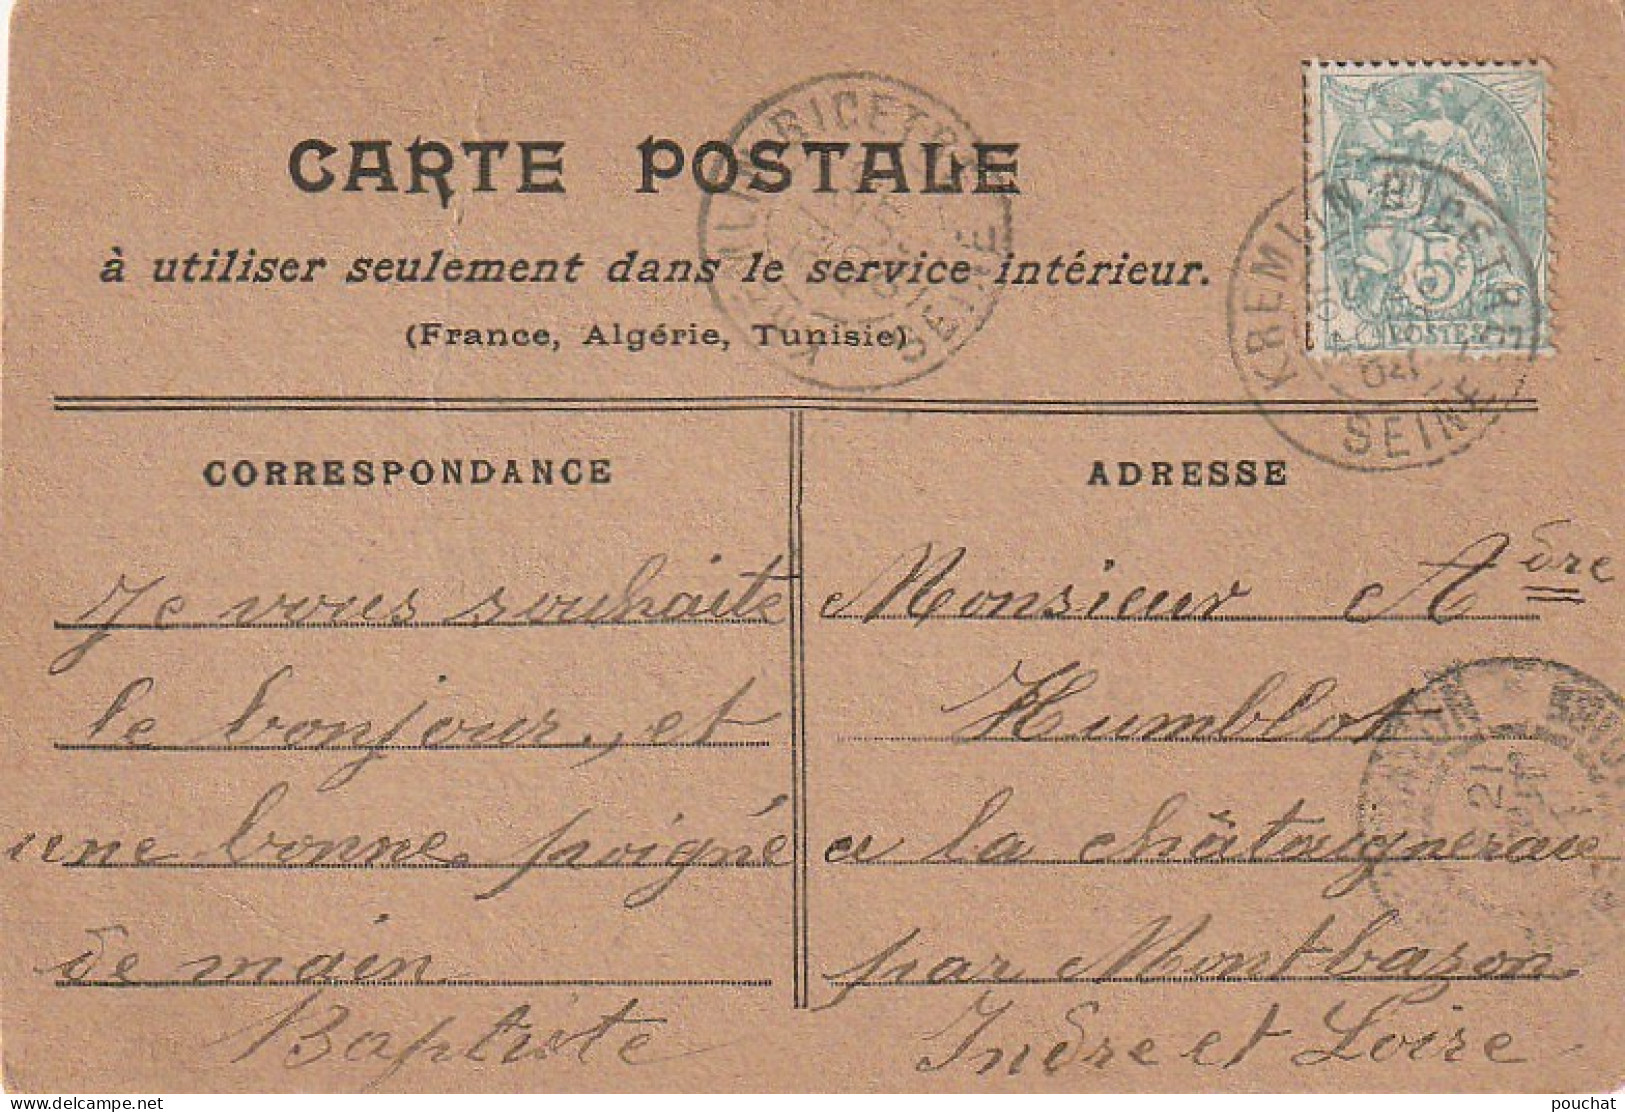 CARTE POSTALE
à utiliser seulement dans le service intérieur.
(France, Algérie, Tunisie)
KREMLIN BICETRE
SEINE
KREMLIN BICETRE
SEINE
5c
POSTES
CORRESPONDANCE
Je vous souhaite
le bonjour, et
une bonne poigné
de main
Baptiste
ADRESSE
Monsieur Adre
Humblot
a la châtaigneraie
par Montbazon
Indre et Loire
21
pouchat